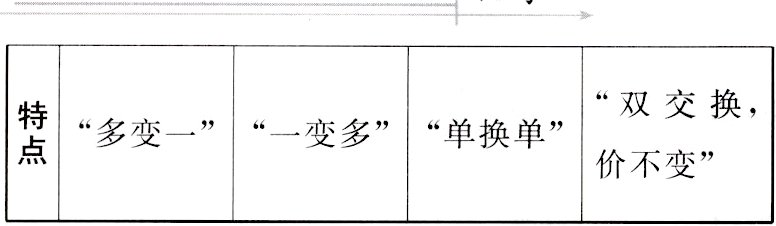 特点
“多变一” “一变多” “单换单” “双交换,
价不变”